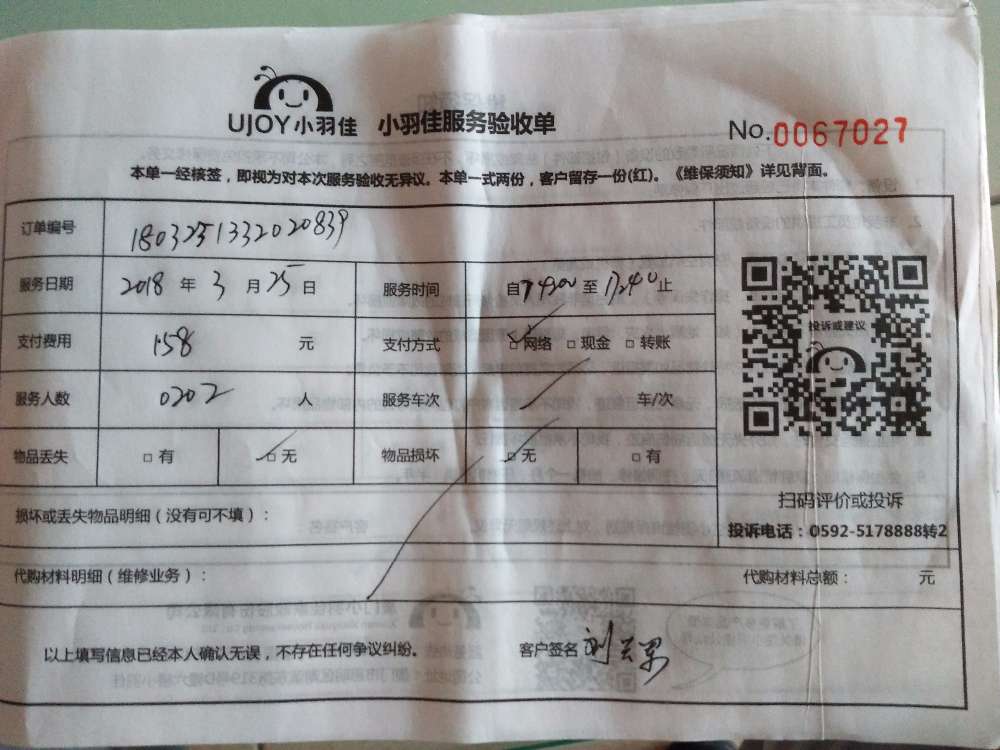 UJOY小羽佳 小羽佳服务验收单 No.0067027
本单一经核签，即视为对本次服务验收无异议。本单一式两份，客户留存一份(红)。《维保须知》详见背面。
订单编号 1803251332020839
服务日期 2018 年 3 月 25 日 服务时间 自 至 17:40 止
支付费用 158 元 支付方式 □网络 □现金 □转账
投诉或建议
服务人数 0202 人 服务车次 车/次
物品丢失 □有 □无 物品损坏 □无 □有
扫码评价或投诉
损坏或丢失物品明细（没有可不填）：
投诉电话：0592-5178888转2
代购材料明细（维修业务）： 代购材料总额： 元
以上填写信息已经本人确认无误，不存在任何争议纠纷。 客户签名